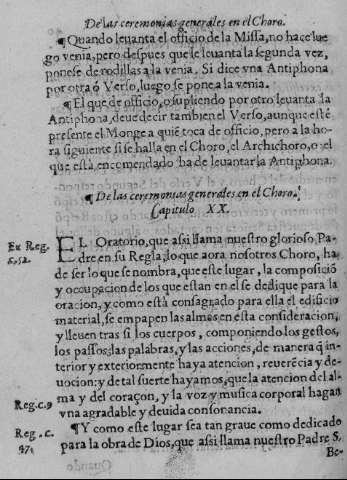 De las ceremonias generales en el Choro.
¶ Quando leuanta el officio de la Missa, no hace lue
go venia, pero despues que le leuanta la segunda vez,
ponese de rodillas a la venia. Si dice vna Antiphona
por otra ó Verso, luego se pone a la venia.
¶ El que de officio, o supliendo por otro leuanta la
Antiphona, deue decir tambien el Verso, aunque esté
presente el Monge a quiē toca de officio, pero a la ho-
ra siguiente si se halla en el Choro, el Archichoro, o el
que está encomendado ha de leuantar la Antiphona.
¶ De las ceremonias generales en el Choro.
Capitulo XX.
Ex Reg.
c. 52.
EL Oratorio, que assi llama nuestro glorioso Pa-
dre en su Regla, lo que aora nosotros Choro, ha
de ser lo que se nombra, que este lugar, la composiciō
y occupacion de los que estan en el se dedique para la
oracion, y como está consagrado para ella el edificio
material, se empapen las almas en esta consideracion,
y lleuen tras si los cuerpos, componiendo los gestos,
los passos, las palabras, y las acciones, de manera q̃ in-
terior y exteriormente haya atencion, reuerēcia y de-
uocion: y de tal suerte hayamos, que la atencion del al-
ma y del coraçon, y la voz y musica corporal hagan
Reg. c. 9
vna agradable y deuida consonancia.
Reg. c.
47.
¶ Y como este lugar sea tan graue como dedicado
para la obra de Dios, que assi llama nuestro Padre S.
Be-